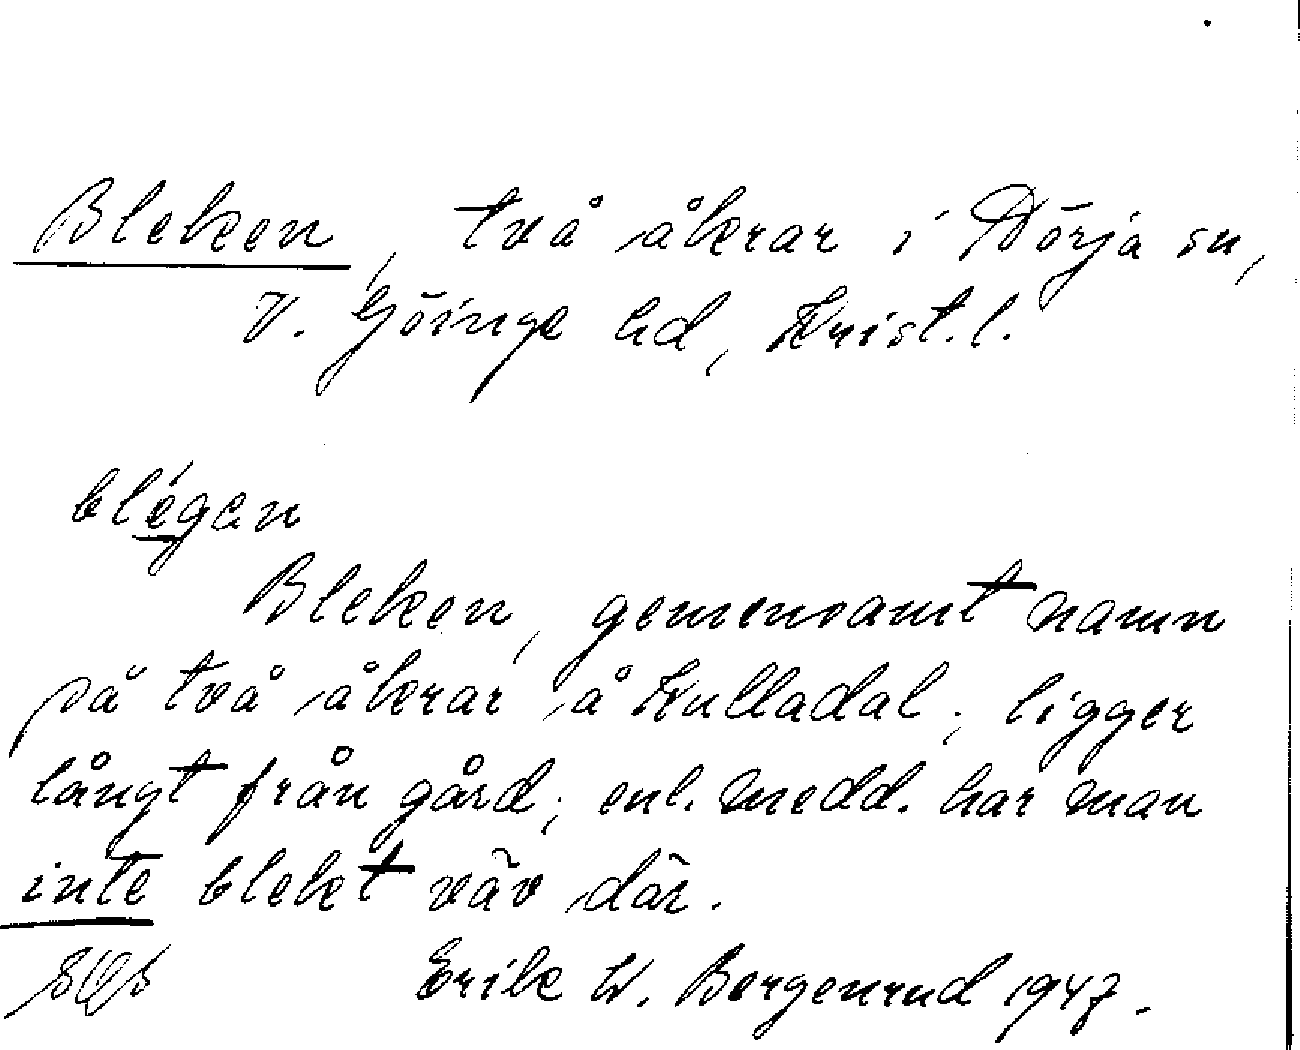 Bleken, två åkrar i Nörja sn,
V. Göinge hd, Krist. l.
blégen
Bleken, gemensamt namn
på två åkrar å Kulladal; ligger
långt från gård; enl. medd. har man
inte blekt väv där.
Erik W. Bergenrud 1947.